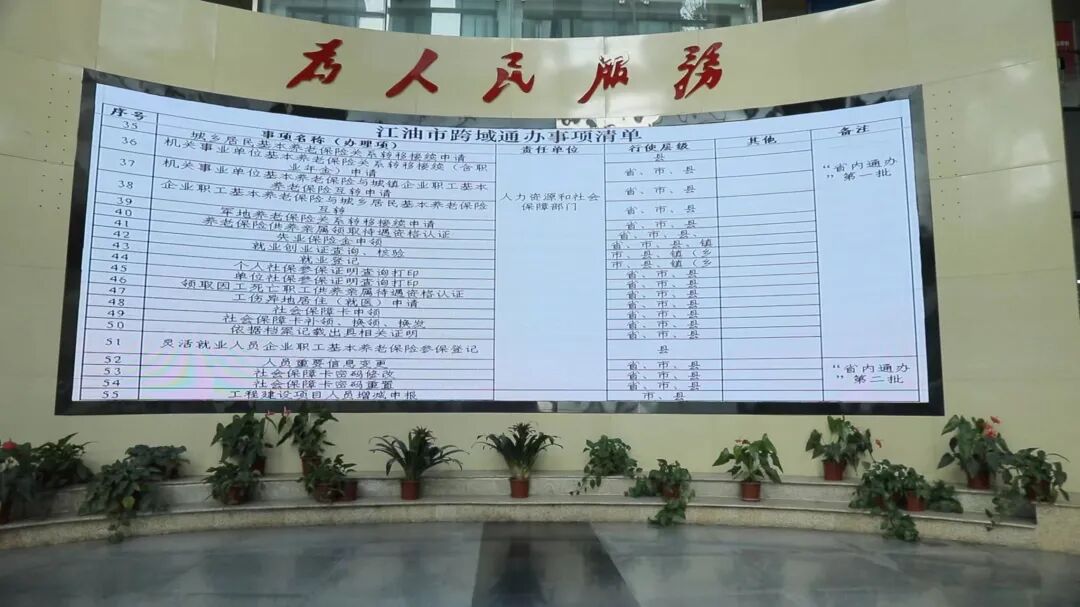 为人民服务
江油市跨域通办事项清单
序号 事项名称（办理项） 责任单位 行使层级 其他 备注
35 城乡居民基本养老保险关系转移接续申请 县
36 机关事业单位基本养老保险关系转移接续（含职业年金）申请 省、市、县
37 机关事业单位基本养老保险与城镇企业职工基本养老保险互转申请 省、市、县
38 企业职工基本养老保险与城乡居民基本养老保险互转 省、市、县
人力资源和社会保障部门
“省内通办”第一批
39 军地养老保险关系转移接续申请 省、市、县
40 养老保险供养亲属领取待遇资格认证 省、市、县、
41 失业保险金申领 省、市、县
42 就业创业证查询、核验 省、市、县、镇
43 就业登记 市、县、镇（乡
44 市、县、镇（乡
45 个人社保参保证明查询打印 省、市、县
46 单位社保参保证明查询打印 省、市、县
47 领取因工死亡职工供养亲属待遇资格认证 省、市、县
48 工伤异地居住（就医）申请 省、市、县
49 社会保障卡申领 省、市、县
50 社会保障卡补领、换领、换发 省、市、县
依据档案记载出具相关证明 省、市、县
51 灵活就业人员企业职工基本养老保险参保登记 县
52 人员重要信息变更 省、市、县
53 社会保障卡密码修改 省、市、县
54 社会保障卡密码重置 省、市、县
55 工程建设项目人员增减申报 市、县
“省内通办”第二批